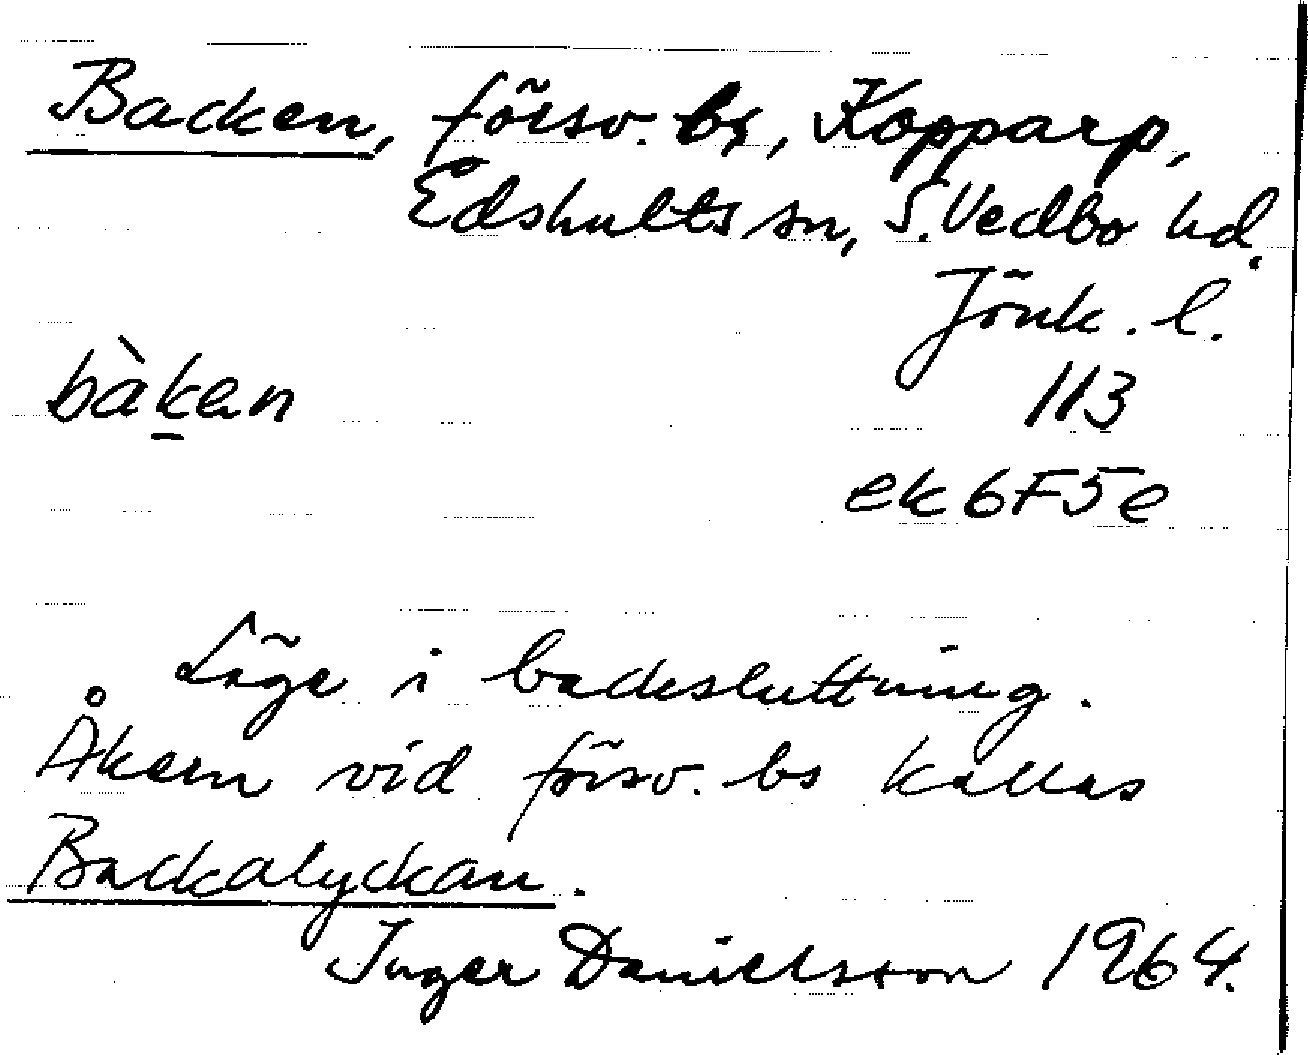 Backen, försv. bs, Kopparp,
Edshults sn, S. Vedbo hd.
Jönk. l.
bàkan
113
ek 6F5e
Läge i backsluttning.
Åkern vid försv. bs kallas
Backalyckan.
Inger Danielsson 1964.